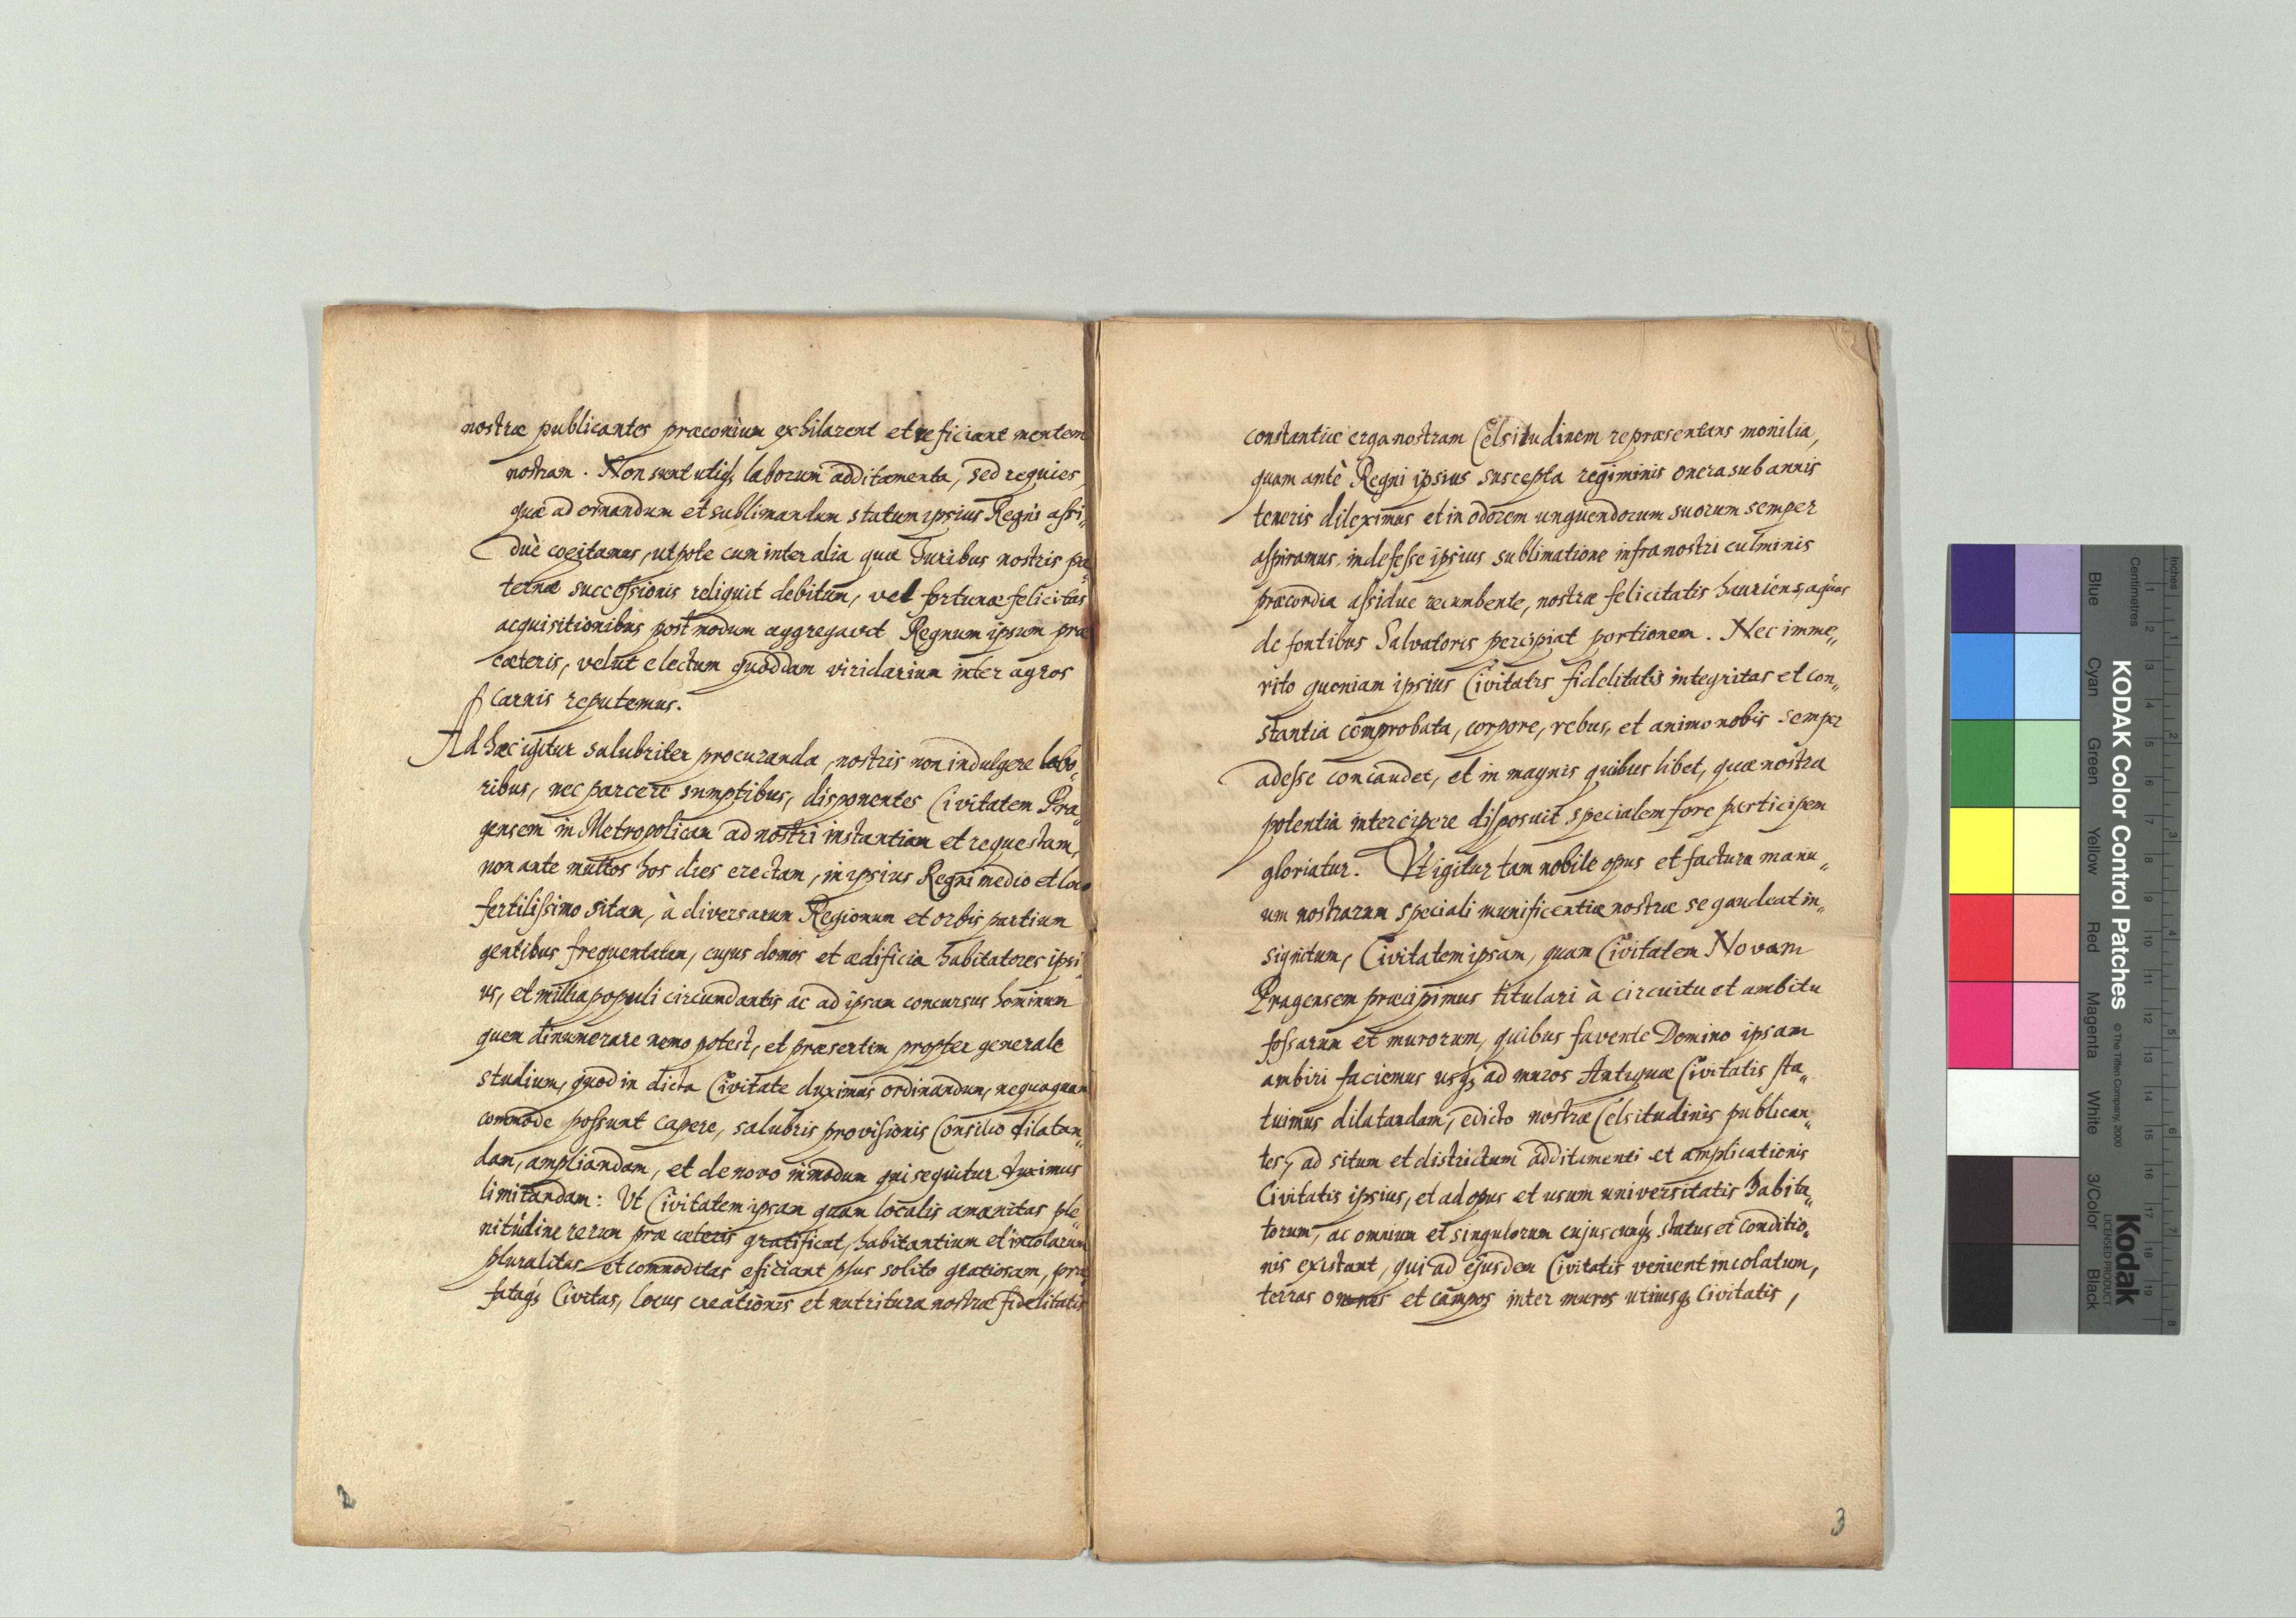 nostræ publicantes præconium exhilarent et reficiant mentem
nostram. Non sunt utiq; laborum additamenta, sed requies
quæ ad ornandum et sublimandum statum ipsius Regni assi„
duè cogitamus, utpote cum inter alia quæ Juribus nostris pa„
ternæ successionis reliquit debitum, vel fortunæ felicitas
acquisitionibus postmodum aggregavit Regnum ipsum præ
cæteris, velut electum quoddam viridarium inter agros
carnis reputemus.
Ad hæc igitur salubriter procuranda, nostris non indulgere labo„
ribus, nec parcere sumptibus, disponentes Civitatem Pra„
gensem in Metropolican ad nostri instantiam et requestam,
non ante multos hos dies erectam, in ipsius Regni medio et loco
fertilissimo sitam, à diversarum Regionum et orbis partium
gentibus frequentatam, cujus domos et ædificia habitatores ipsi„
us, et millia populi circumdantis ac ad ipsam concursus hominum
quem dinumerare nemo potest, et præsertim propter generale
studium, quod in dicta Civitate duximus ordinandum, nequaquam
commode possunt capere, salubris provisionis Consilio dilatan„
dam, ampliandam, et de novo in modum qui sequitur duximus
limitandam: Ut Civitatem ipsam quam localis amænitas ple„
nitudine rerum præ cæteris gratificat, habitantium et incolarum
pluralitas et commoditas eficiant plus solito gratiosam, præ„
fataq; Civitas, locus creationis et nutritura nostræ fidelitatis
2
constantiæ erga nostram Celsitudinem repræsentans monilia,
quam antè Regni ipsius suscepta regiminis onera sub annis
teneris dileximus et in odorem unguendorum suorum semper
aspiramus, indefesse ipsius sublimatione infra nostri culminis
præcordia assidue recumbente, nostræ felicitatis hauriens aquas
de fontibus Salvatoris percipiat portionem. Nec imme„
rito quoniam ipsius Civitatis fidelitatis integritas et con„
stantia comprobata, corpore, rebus, et animo nobis semper
adesse congaudet, et in magnis quibus libet, quæ nostra
potentia intercipere disposuit specialem fore participem
gloriatur. Ut igitur tam nobile opus et factura manu„
um nostrarum speciali munificentiæ nostræ se gaudeat in„
signitum, Civitatem ipsam, quam Civitatem Novam
Pragensem præcipimus titulari à circuitu et ambitu
fossarum et murorum, quibus favente Domino ipsam
ambiri faciemus usq; ad muros Antiquæ Civitatis sta„
tuimus dilatandam, edicto nostræ Celsitudinis publican„
tes, ad situm et districtum additamenti et amplicationis
Civitatis ipsius, et ad opus et usum universitatis habita„
torum, ac omnium et singulorum cujuscunq; status et conditio„
nis existant, qui ad ejusdem Civitatis venient incolatum,
terras omnes et campos inter muros utriusq; Civitatis,
3
KODAK Color Control Patches
© The Tiffen Company, 2000
Kodak
LICENSED PRODUCT
Inches
Centimetres
Blue Cyan Green Yellow Red Magenta White 3/Color Black